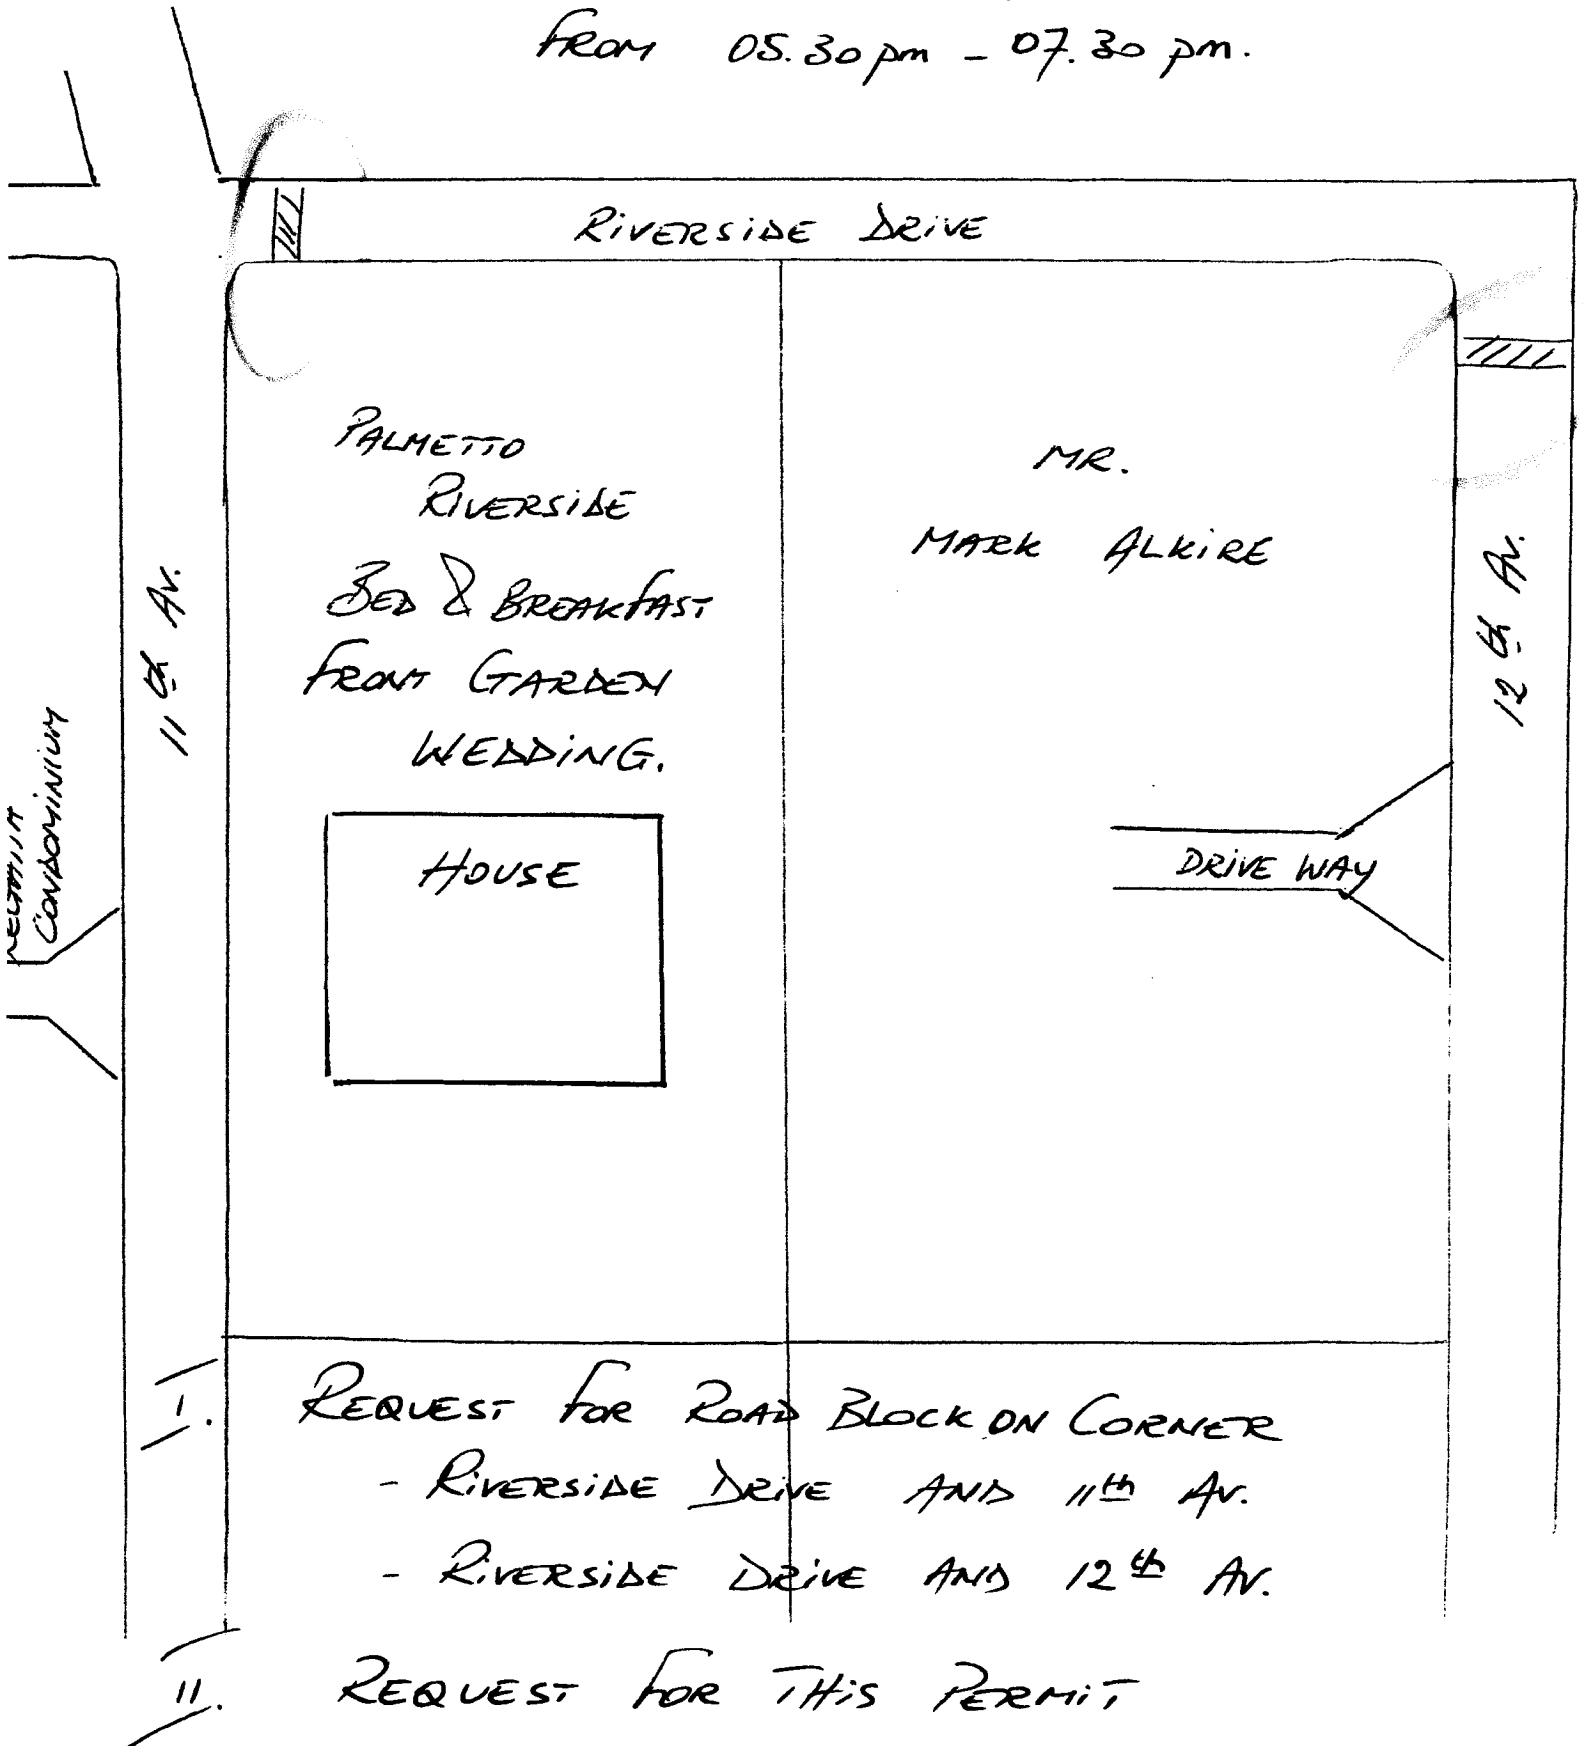 FROM 05.30 pm - 07.30 pm.
RiVERSiDE DRiVE
PALMETTO
RIVERSiDE
BED & BREAKFAST
FRONT GARDEN
WEDDiNG.
MR.
MARK ALKiRE
11th Av.
12th Av.
CONDOMINIUM
HOUSE
DRiVE WAY
I. REQUEST FOR ROAD BLOCK ON CORNER
- RiVERSiDE DRiVE AND 11th Av.
- RiVERSiDE DRiVE AND 12th Av.
II. REQUEST FOR THiS PERMiT